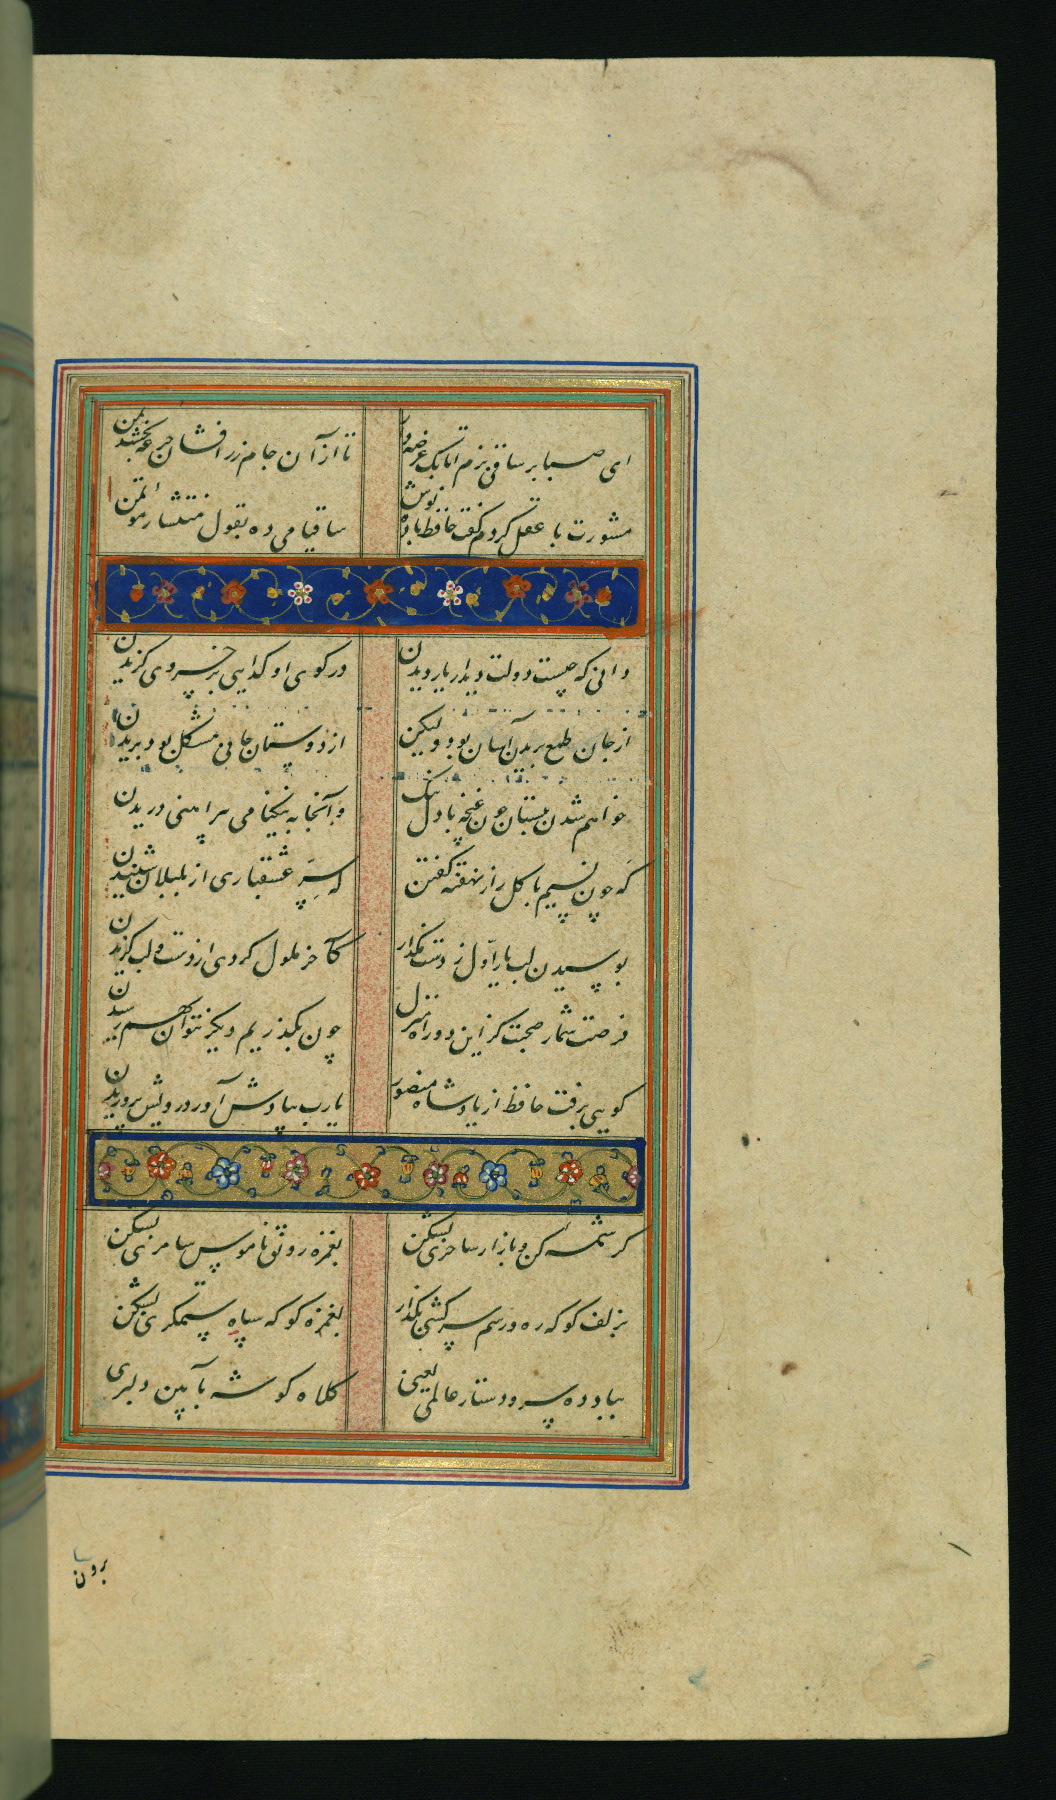 ای صبا بر ساقی بزم اتابک عرضه دار تا از آن جام زرافشان جرعه بخشد بمن
مشورت با عقل کردم گفت حافظ باده بنوش ساقیا می ده بقول مستشار مؤتمن
دانی که چیست دولت دیدار یار دیدن در کوی او گدایی بر خسروی گزیدن
از جان طمع بریدن آسان بود ولیکن از دوستان جانی مشکل بود بریدن
خواهم شدن ببستان چون غنچه با دل تنک وآنجا به نیکنامی پیراهنی دریدن
که چون نسیم با کل راز نهفته کفتن که سر عشقبازی از بلبلان شنیدن
بوسیدن لب یار اول ز دست مکذار کآخر ملول کردی از دست و لب کزیدن
فرصت شمار صحبت کز این دو راه منزل چون بکذریم دیکر نتوان بهم رسیدن
کویی برفت حافظ از یاد شاه منصور یارب بیادش آور درویش پروریدن
کرشمه کن و بازار ساحری بشکن بغمزه رونق ناموس سامری بشکن
بزلف کو که ره و رسم سرکشی بکذار بغمزه کو که سپاه ستمکری بشکن
بباد ده سر و دستار عالمی یعنی کلاه کوشه بآیین دلبری
برون